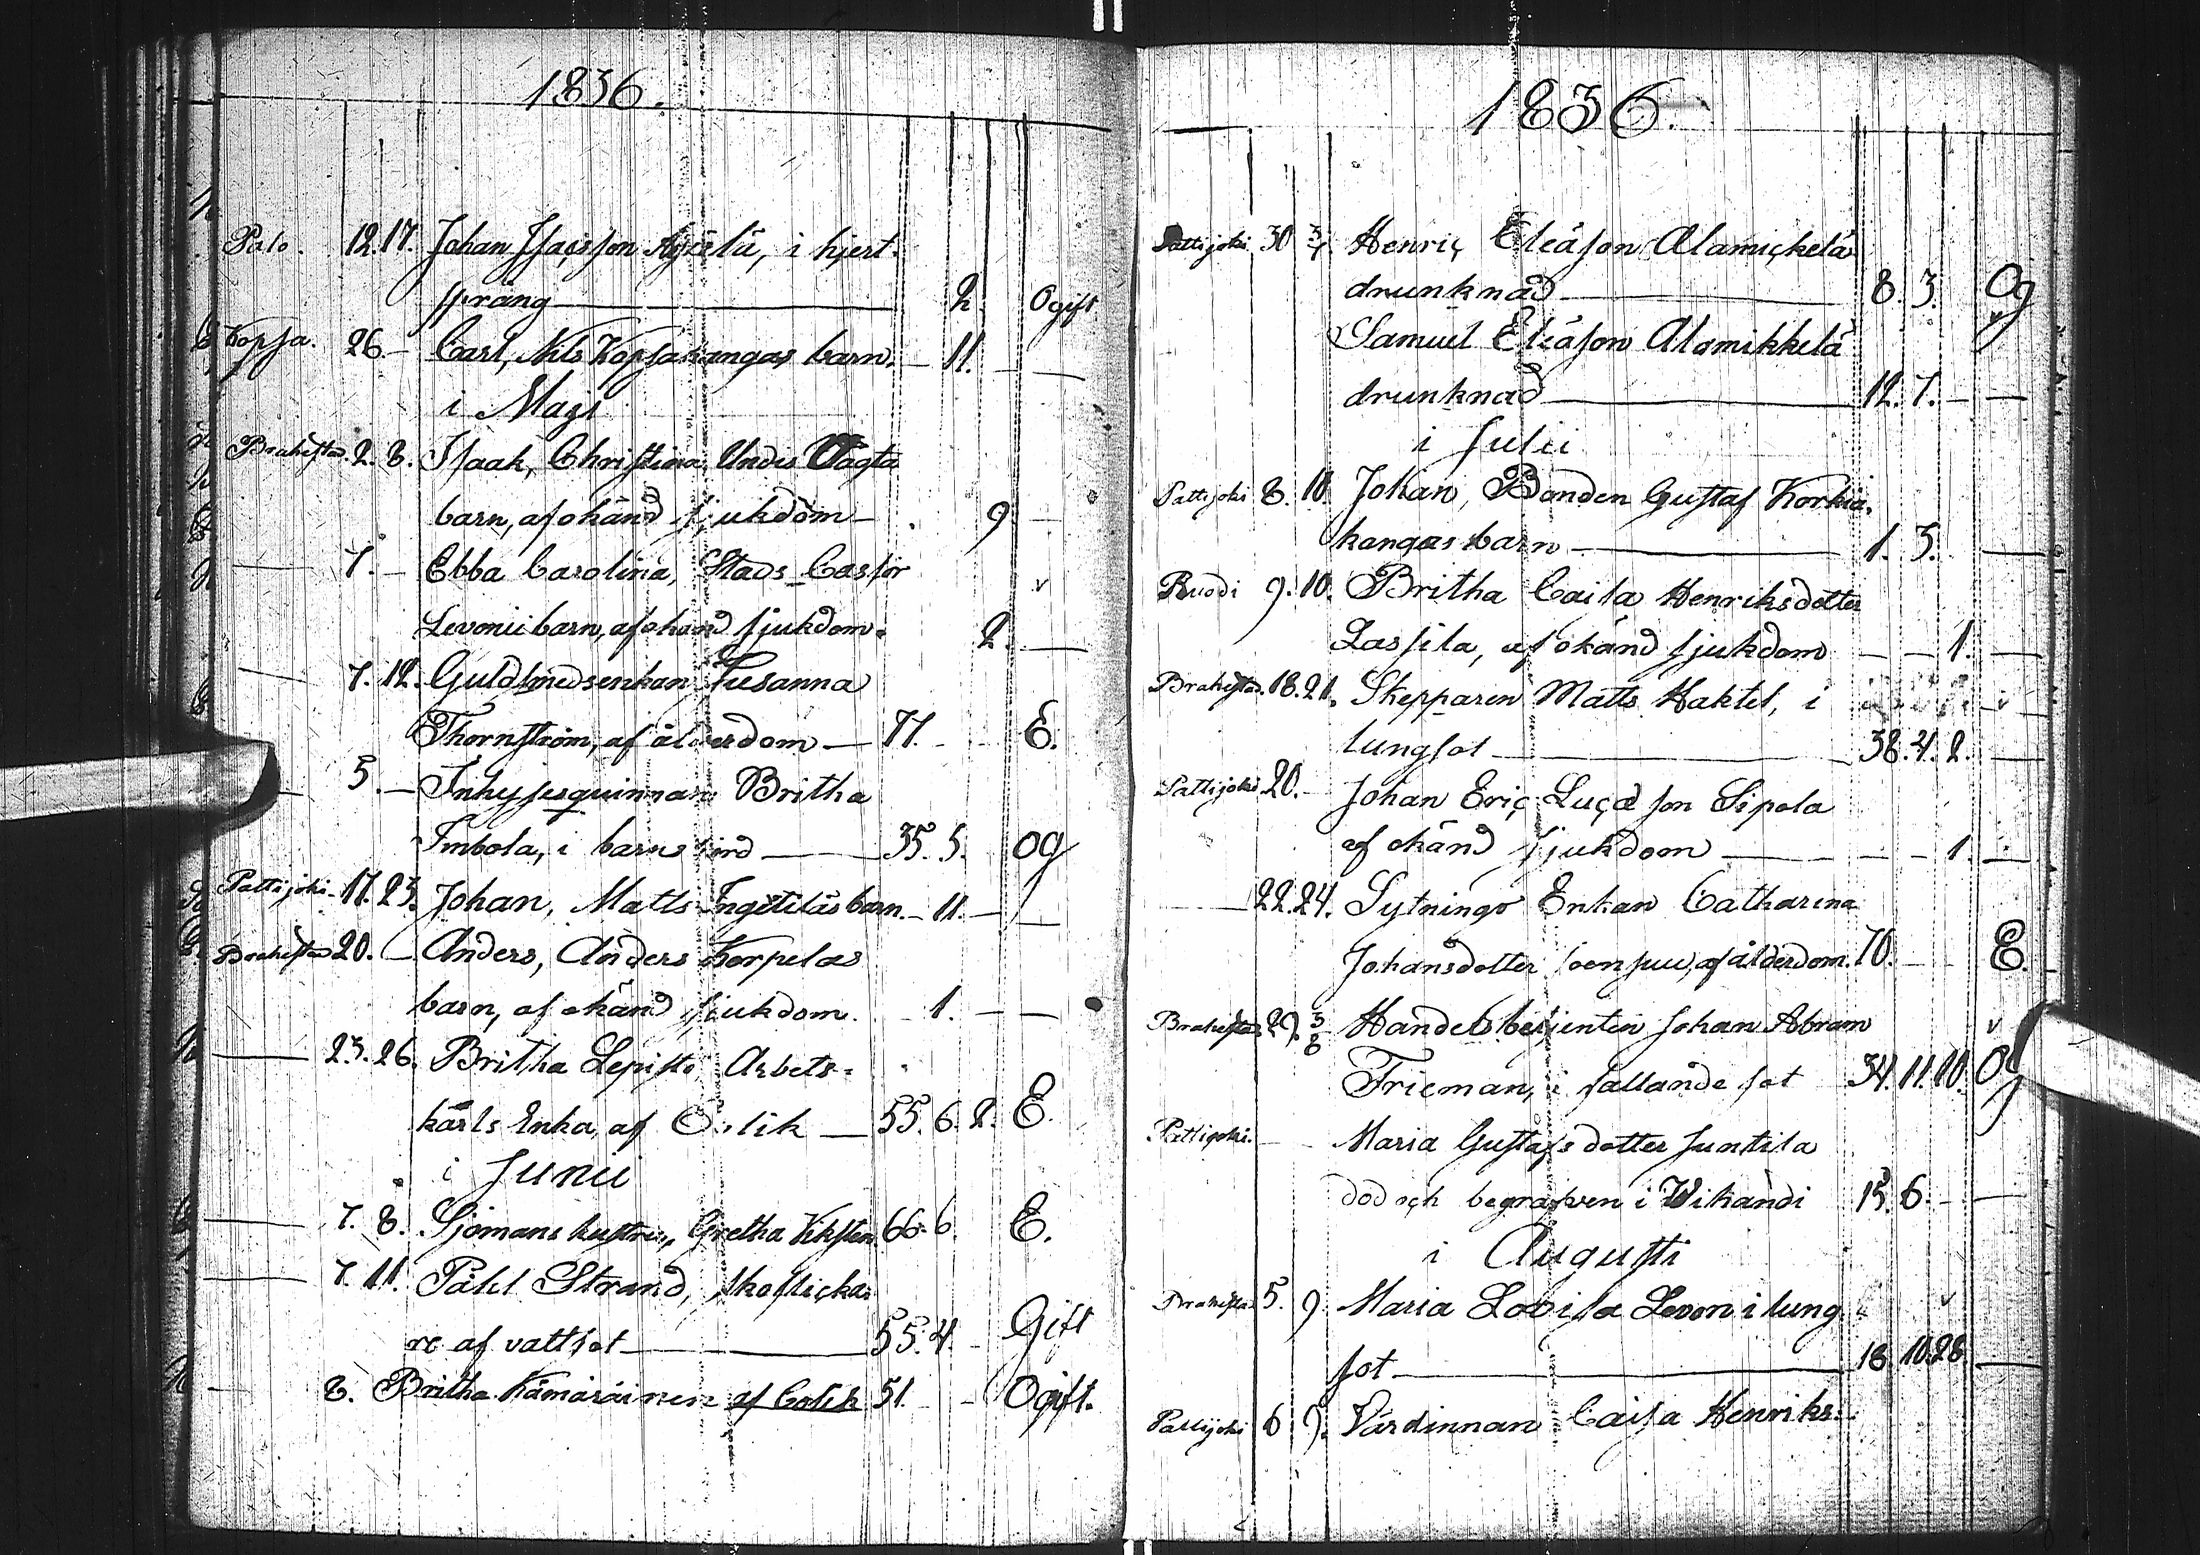 1836.
Palo. 12. 17. Johan Isacsson Kyrölä, i hjert-
språng — 2. Ogift
Kopsa. 26. — Carl, Nils Kopsakangas barn. — 11. —
i Maji
Brahestad. 2. 8. Isaak, Christina Undis Wågta
barn, af okänd sjukdom — 9 —
— 7. — Ebba Carolina, Stads Cassör
Levonii barn, af okänd sjukdom. 2. —
— 7. 12. Guldsmedsenkan Susanna
Thornström, af ålderdom — 77. E.
— 5. — Inhysesquinnan Britha
Imbola, i barnsbörd — 35. 5. Og
Pattijoki. 17. 23. Johan, Matts Ingetiläs barn. — 11. —
Brahestad 20. — Anders, Anders Korpelas
barn, af okänd sjukdom. 1. — —
— 23. 26. Britha Lepistö Arbets-
karls Enka, af Colik — 55. 6. 2. E.
i Junii
— 7. 8. Sjömans hustrun, Gretha Viksten. 66. 6. E.
— 7. 11. Påhl Strand, skoflicka-
re af vattsot — 55. 4. Gift
— 8. Britha Kämäräinen af Colik 51. — Ogift.
1836.
Pattijoki 30 3/7. Henric Eleäson Alamickelä
drunknad — 8. 3. Og
Samuel Eleäson Alamikkelä
drunknad — 12. 7. — —
i Julii
Pattijoki 8. 10. Johan, Bonden Gustaf Korkia-
kangas barn — 1. 3. —
Ruodi 9. 10. Britha Caisa Henriksdotter
Lassila, af okänd sjukdom — — 1. —
Brahestad. 18. 21. Skepparen Matts Haktel, i
lungsot — 38. 4. 2. —
Pattijoki 20. — Johan Eric Lucæson Sipola
af okänd sjukdom — — — 1. —
— 22. 24. Sytnings Enkan Catharina
Johansdotter af ålderdom. 70. — E.
Brahestad 29. 3/8 Handelsbetjenten Johan Abram
Frieman, i fallande sot 34. 11. 10. Og
Pattijoki. — Maria Gustafsdotter Juntila
död och begrafven i Wikandi 15. 6. — —
i Augusti
Brahestad 5. 9. Maria Lovisa Levon i lung
sot — 18. 10. 28. —
Pattijoki 6 9. Värdinnan Caisa Henriks-